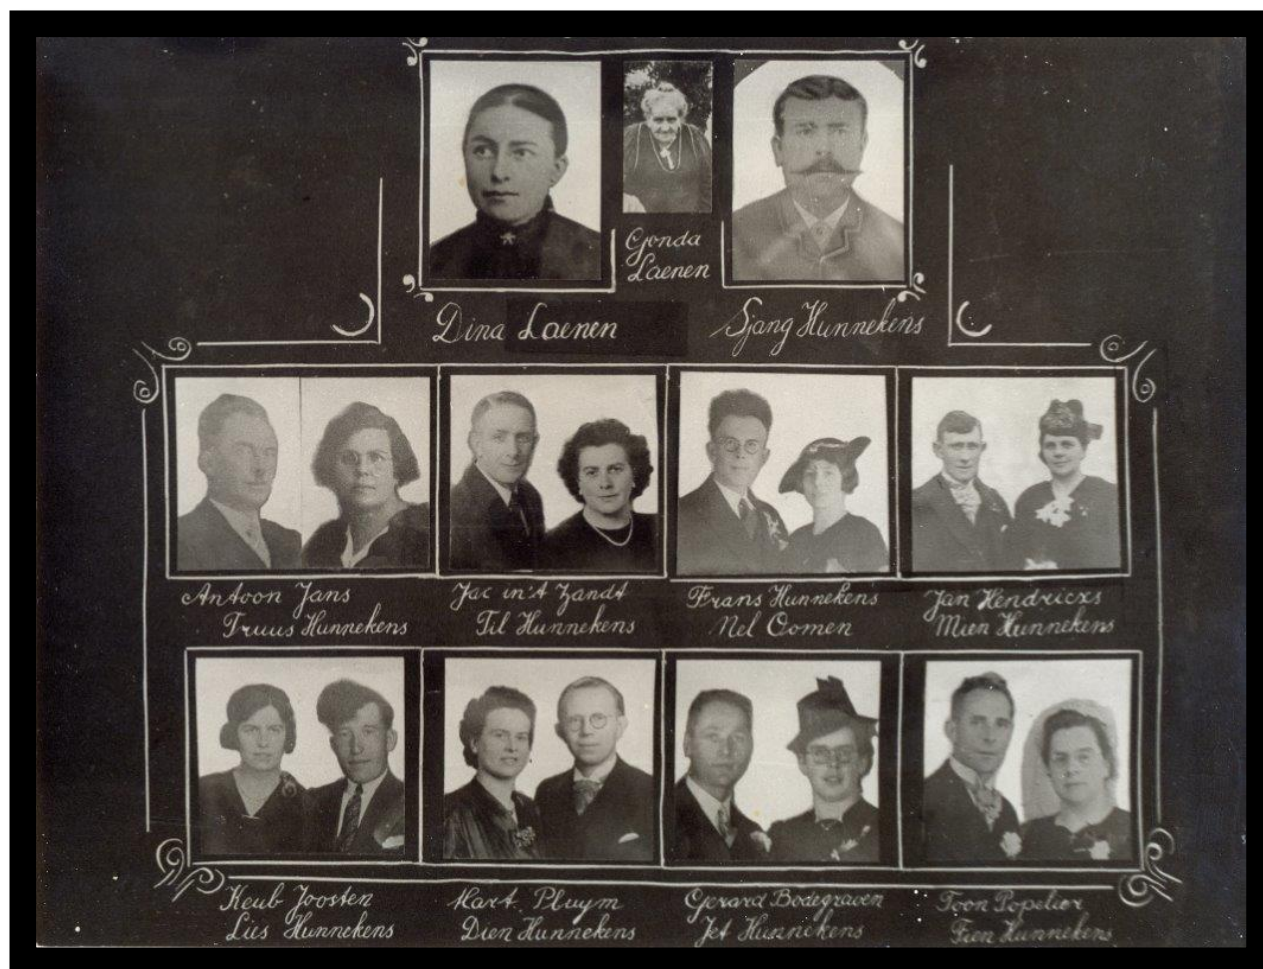 Gonda
Laenen
Dina Laenen
Sjang Hunnekens
Antoon Jans
Truus Hunnekens
Jac in't Zandt
Til Hunnekens
Frans Hunnekens
Nel Oomen
Jan Hendricxs
Mien Hunnekens
Keub Joosten
Lies Hunnekens
Hart. Pluym
Dien Hunnekens
Gerard Bodegraven
Jet Hunnekens
Toon Popelier
Fien Hunnekens